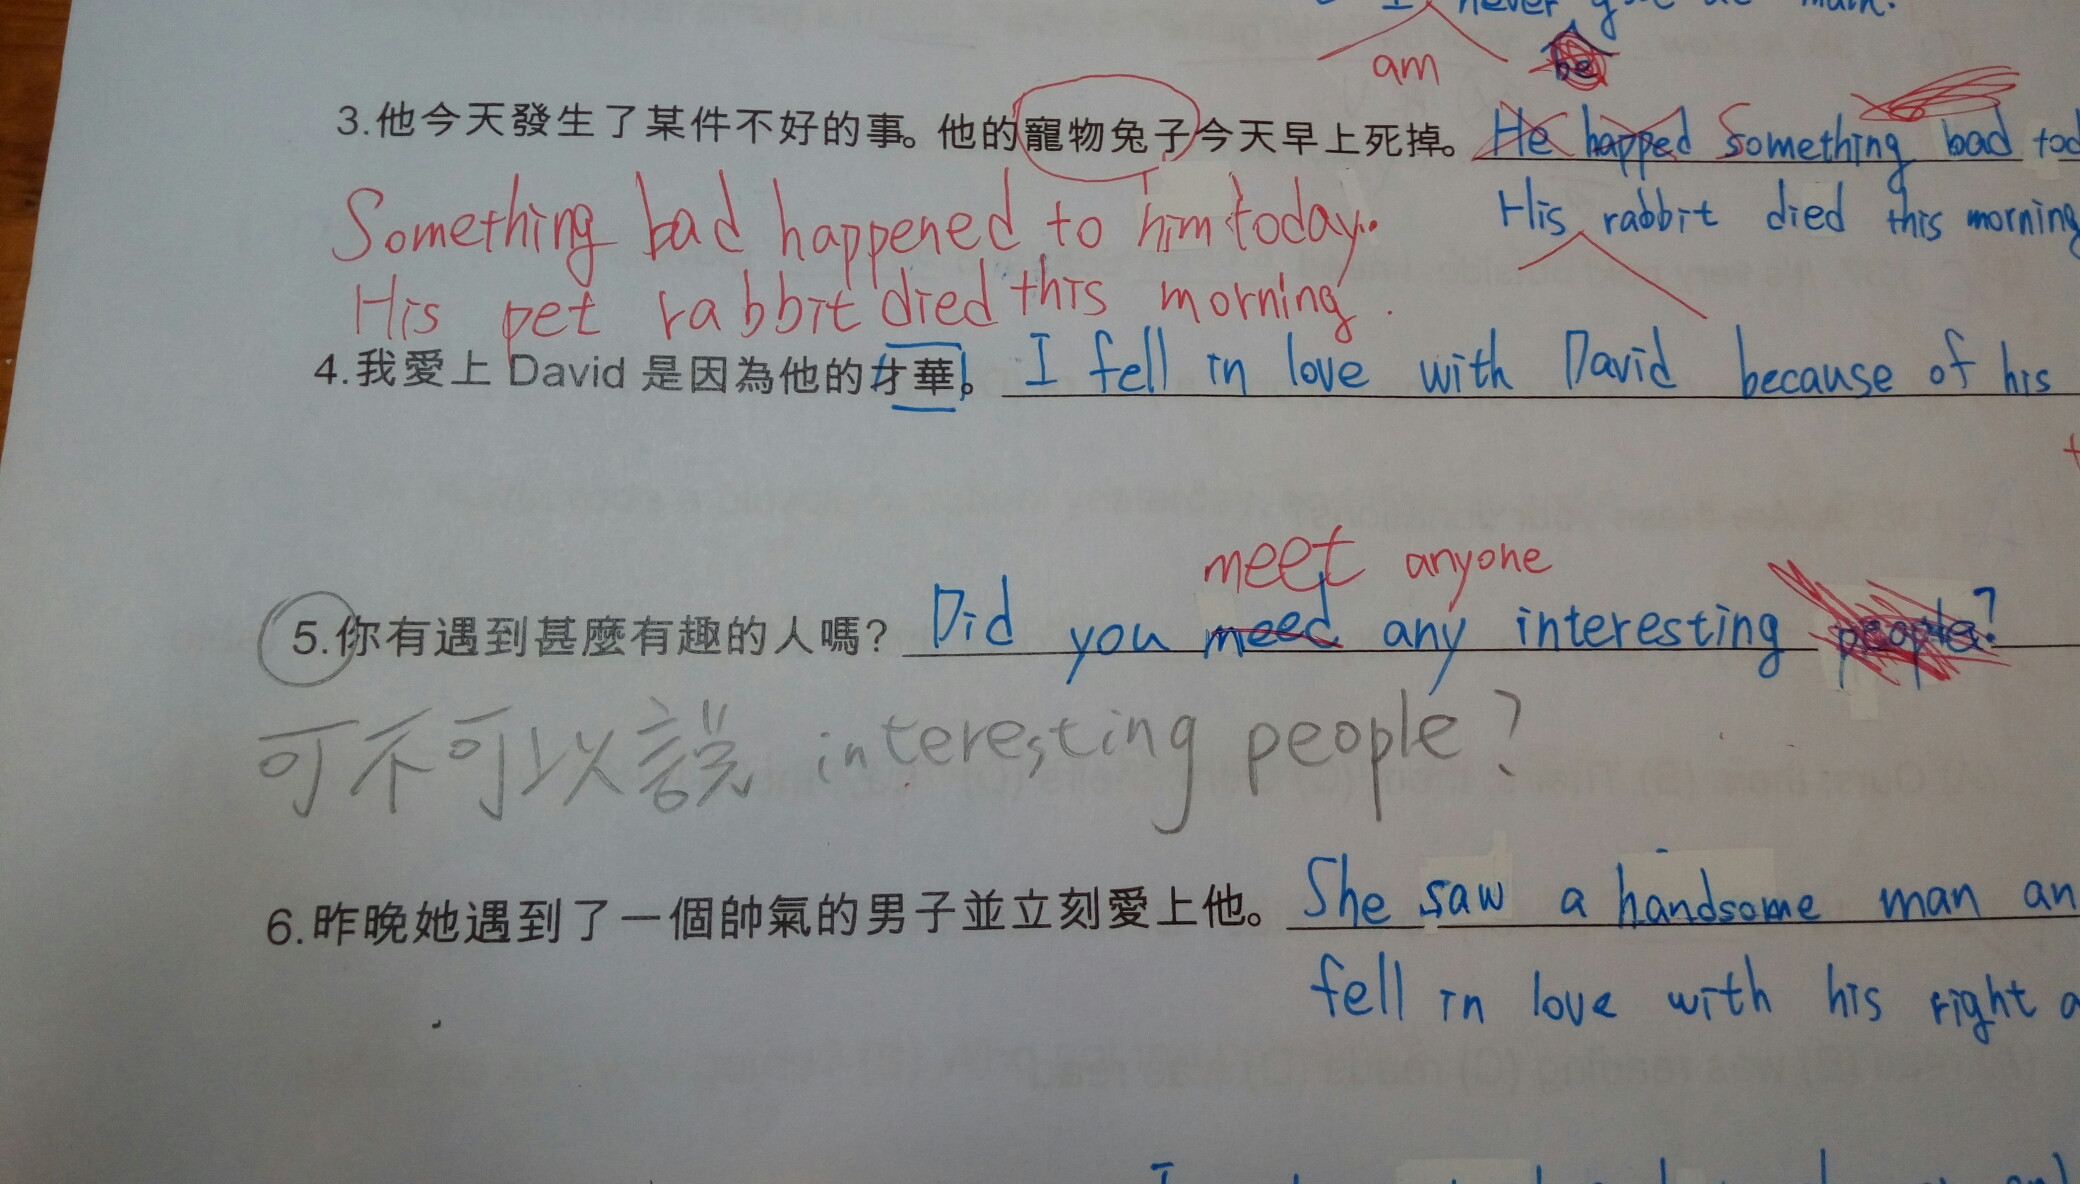 I never
am
be
3.他今天發生了某件不好的事。他的寵物兔子今天早上死掉。 He happed Something bad tod
His rabbit died this morning
Something bad happened to him today.
His pet rabbit died this morning.
4.我愛上 David 是因為他的才華。 I fell in love with David because of his
meet anyone
5.你有遇到甚麼有趣的人嗎? Did you meed any interesting people?
可不可以說 interesting people?
6.昨晚她遇到了一個帥氣的男子並立刻愛上他。 She saw a handsome man an
fell in love with his right a